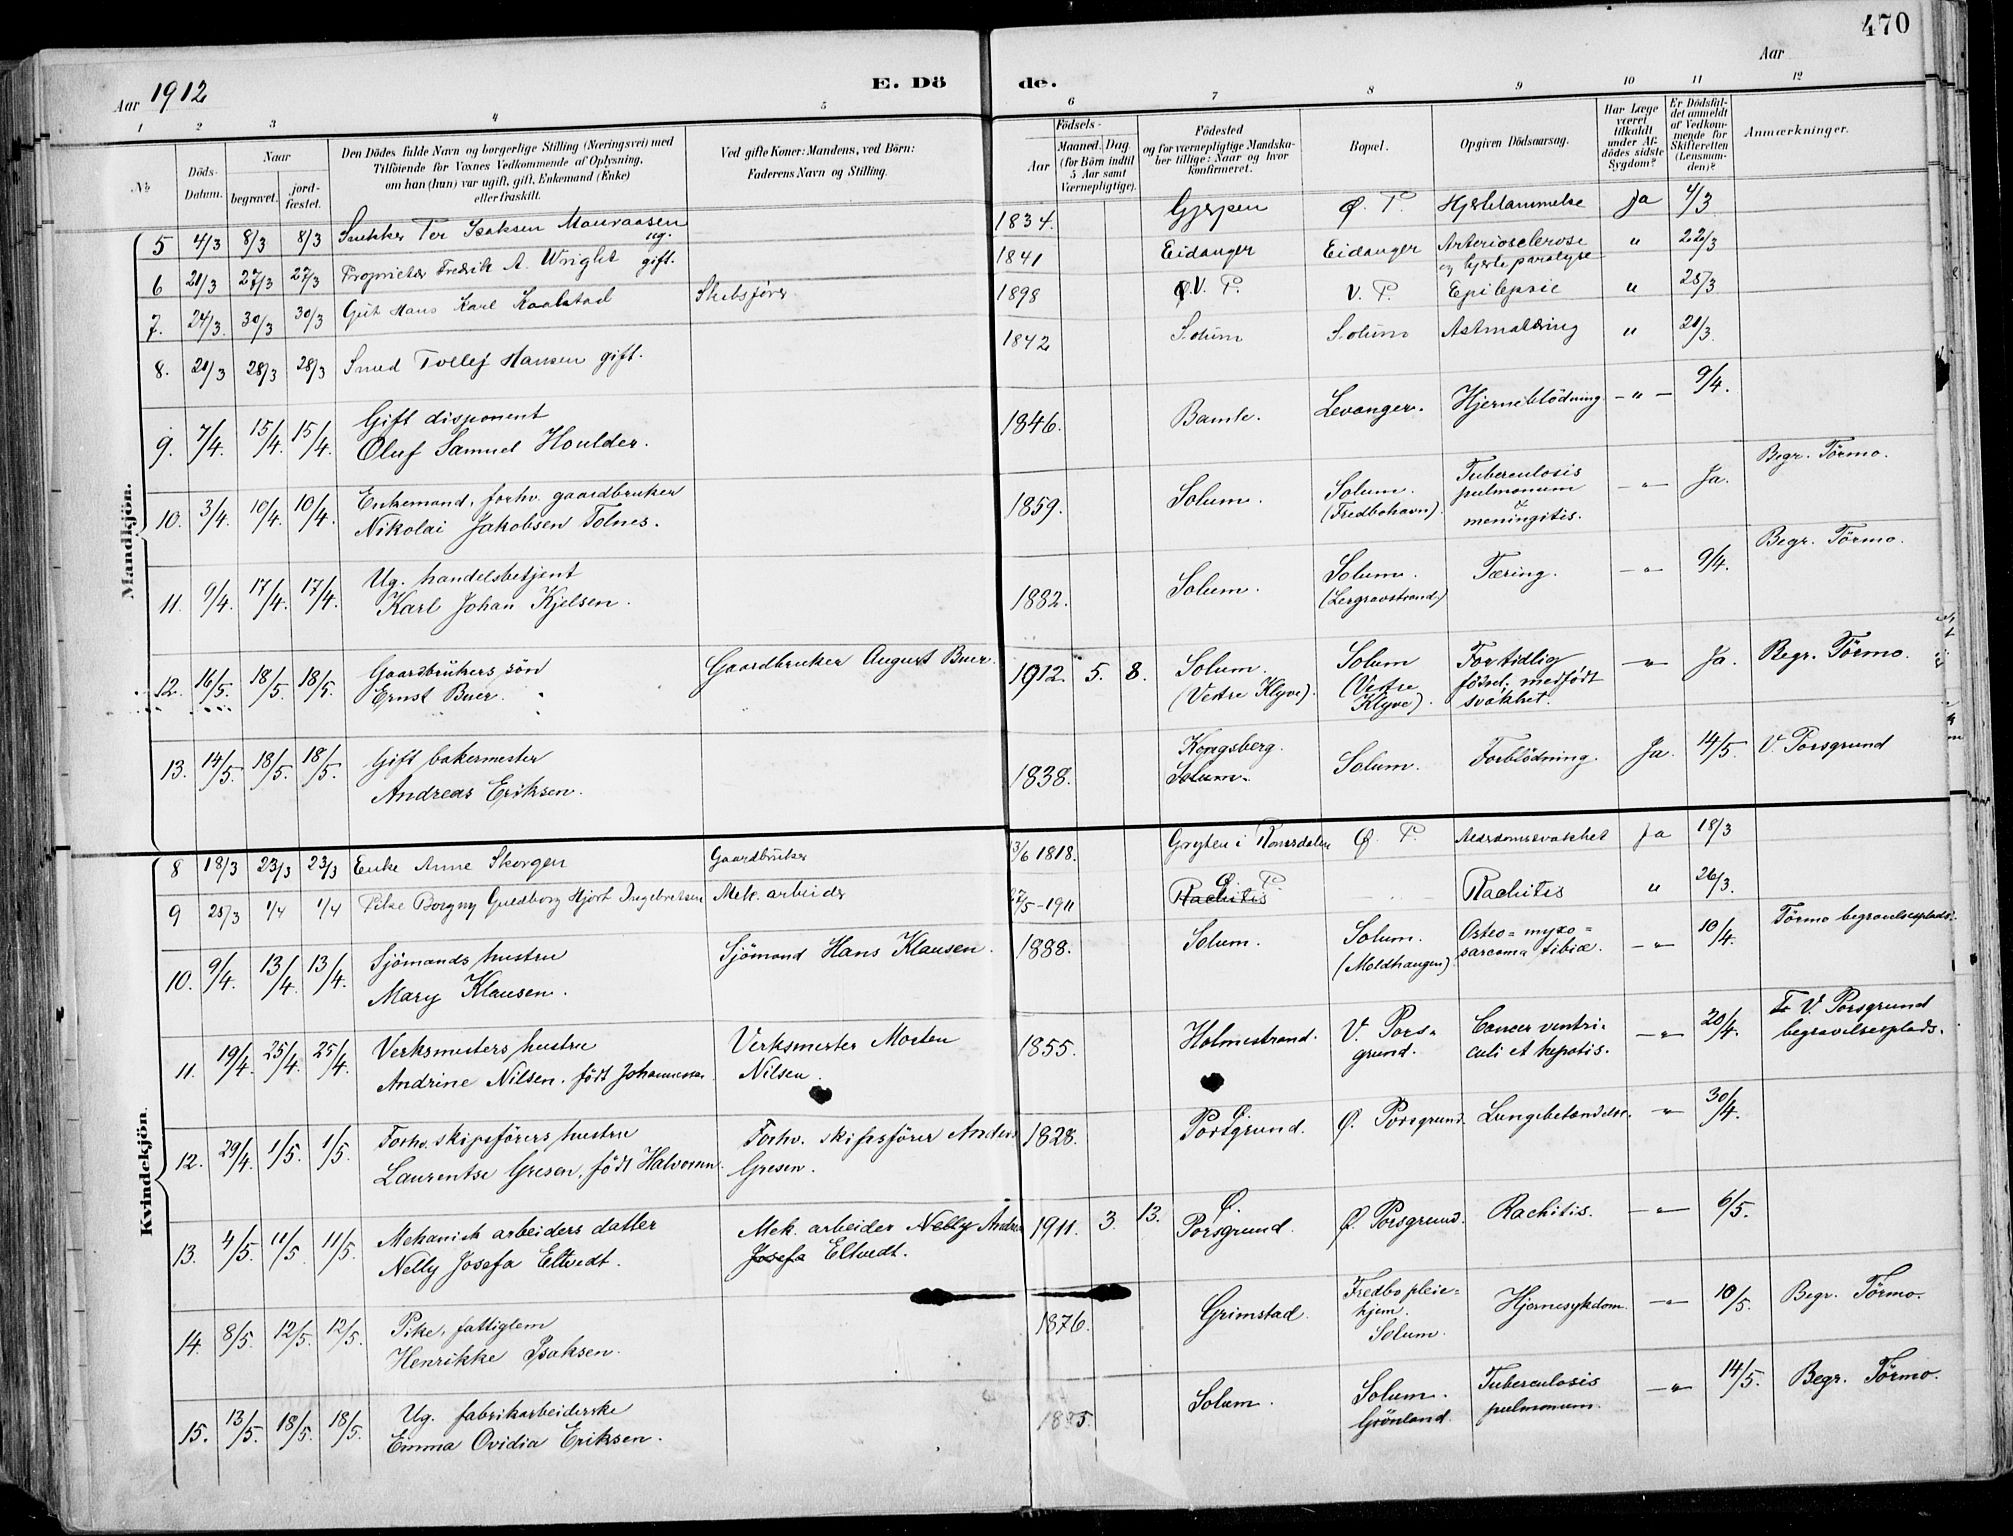 470
Aar 1912
E. Döde.
Aar
1 2 3 4 5 6 7 8 9 10 11 12
№
Döds-Datum.
Naar
begravet.
jordfæstet.
Den Dödes fulde Navn og borgerlige Stilling (Næringsvei) med
Tilföiende for Voxnes Vedkommende af Oplysning,
om han (hun) var ugift, gift, Enkemand (Enke)
eller fraskilt.
Ved gifte Koner: Mandens, ved Börn:
Faderens Navn og Stilling.
Födsels-
Aar
Maaned. Dag.
(for Börn indtil
5 Aar samt
Værnepligtige).
Födested
og for værnepligtige Mandska-
ber tillige: Naar og hvor
konfirmeret.
Bopæl.
Opgiven Dödsaarsag.
Har Læge
været
tilkaldt
under Af-
dödes sidste
Sygdom?
Er Dödsfal-
det anmeldt
af Vedkom-
mende for
Skifteretten
(Lensman-
den)?
Anmærkninger.
Mandkjön.
5 4/3 8/3 8/3 Snekker Per Isaksen Mauraasen ug. 1834. Gjerpen Ø. P. Hjertelammelse Ja 4/3
6 21/3 27/3 27/3 Proprietær Fredrik A. Wright gift. 1841 Eidanger Eidanger Arteriosclerose og hjerteparalyse " 22/3
7. 24/3 30/3 30/3 Gut Hans Karl Kaalstad Skibsfører 1898 V. P. V. P. Epilepsie " 25/3
8. 20/3 28/3 28/3 Smed Tollef Hansen gift. 1842 Solum Solum Astmatæring " 21/3.
9. 7/4. 15/4. 15/4. Gift disponent
Oluf Samuel Houlder. 1846. Bamle. Levanger. Hjerneblödning - " - 9/4.
10. 3/4. 10/4. 10/4. Enkemand, forhv. gaardbruker
Nikolai Jakobsen Tolnes. 1859. Solum. Solum. (Fredbohavn). Tuberculosis pulmonum & meningitis. - " - Ja. Begr. Törmo.
11. 9/4. 17/4. 17/4. Ug. handelsbetjent
Karl Johan Kjelsen. 1882. Solum. Solum. (Lergravstrand.) Tæring. - " - 9/4. Begr. Törmo.
12. 16/5. 18/5. 18/5. Gaardbrukers sön
Ernst Buer. Gaardbruker August Buer. 1912. 5. 8. Solum. (Vestre Klyve). Solum (Vestre Klyve). For tidlig födsel. medfödt svakhet. - " - Ja. Begr. Törmo.
13. 14/5. 18/5. 18/5. Gift bakermester
Andreas Eriksen. 1838. Kongsberg. Solum. Solum. Forblödning. Ja. 14/5. V. Porsgrund
Kvindekjön.
8 18/3 23/3 23/3 Enke Anne Skorgen Gaardbruker 13/6 1818. Gryten i Romsdalen Ø P Alderdomssvakhet Ja 18/3
9 25/3 1/4 1/4 Pike Borgny Guldborg Hjort Ingebretsen Mek. arbeider 27/5-1911 Ø. P. Rachitis Rachitis " 26/3.
10. 9/4. 13/4. 13/4. Sjömands hustru
Mary Klausen. Sjömand Hans Klausen. 1888. Solum. Solum. (Moldhaugen). Osteo=myxo=sarcoma tibiæ. - " - 10/4. Törmo begravelsesplads.
11. 19/4. 25/4. 25/4. Verksmesters hustru
Andrine Nilsen, födt Johannessen. Verksmester Morten Nilsen. 1855. Holmestrand. V. Pors=grund. Cancer ventri-culi et hepatis. - " - 20/4. V. Porsgrund begravelsesplads.
12. 29/4. 1/5. 1/5. Forhv. skipsförers hustru
Laurentse Gresen, födt Halvorsen. Forhv. skipsförer Anders Gresen. 1828. Ø. Porsgrund. Ø. Porsgrund. Lungebetændelse. - " - 30/4.
13. 4/5. 11/5. 11/5. Mekanisk arbeiders datter
Nelly Josefa Eltvedt. Mek. arbeider Nelly Andreas Josefa Eltvedt. 1911. 3. 13. Ø. Porsgrund. Ø. Porsgrund. Rachitis. - " - 6/5.
14. 8/5. 12/5. 12/5. Pike, fattiglem
Henrikke Isaksen. 1876. Grimstad. Fredbo pleie=hjem. Solum. Hjernesykdom. - " - 10/5. Begr. Törmo.
15. 13/5. 18/5. 18/5. Ug. fabrikarbeiderske
Emma Ovidia Eriksen. Solum. Solum. Grönland. Tuberculosis pulmonum. - " - 14/5. Begr. Törmo.